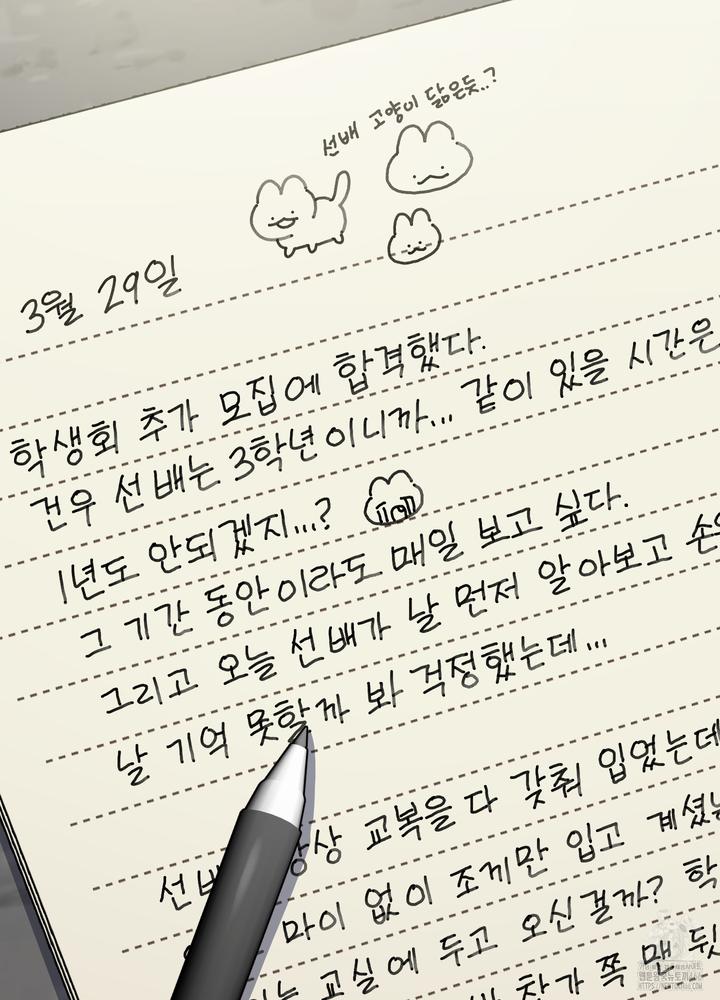 선배 고양이 닮은듯..?
3월 29일
학생회 추가 모집에 합격했다.
건우 선배는 3학년이니까... 같이 있을 시간은
1년도 안되겠지...?
그 기간 동안이라도 매일 보고 싶다.
그리고 오늘 선배가 날 먼저 알아보고
날 기억 못할까 봐 걱정했는데...
교복을 다 갖춰 입었는데
마이 없이 조끼만 입고
교실에 두고 오신걸까?
창가 쪽 맨